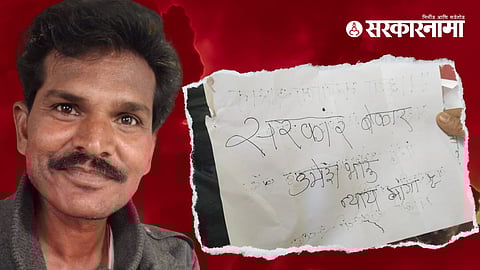 निर्भीड आणि सडेतोड
सरकारनामा
सरकार बेकार
उमेश भाऊ
न्याय मागा